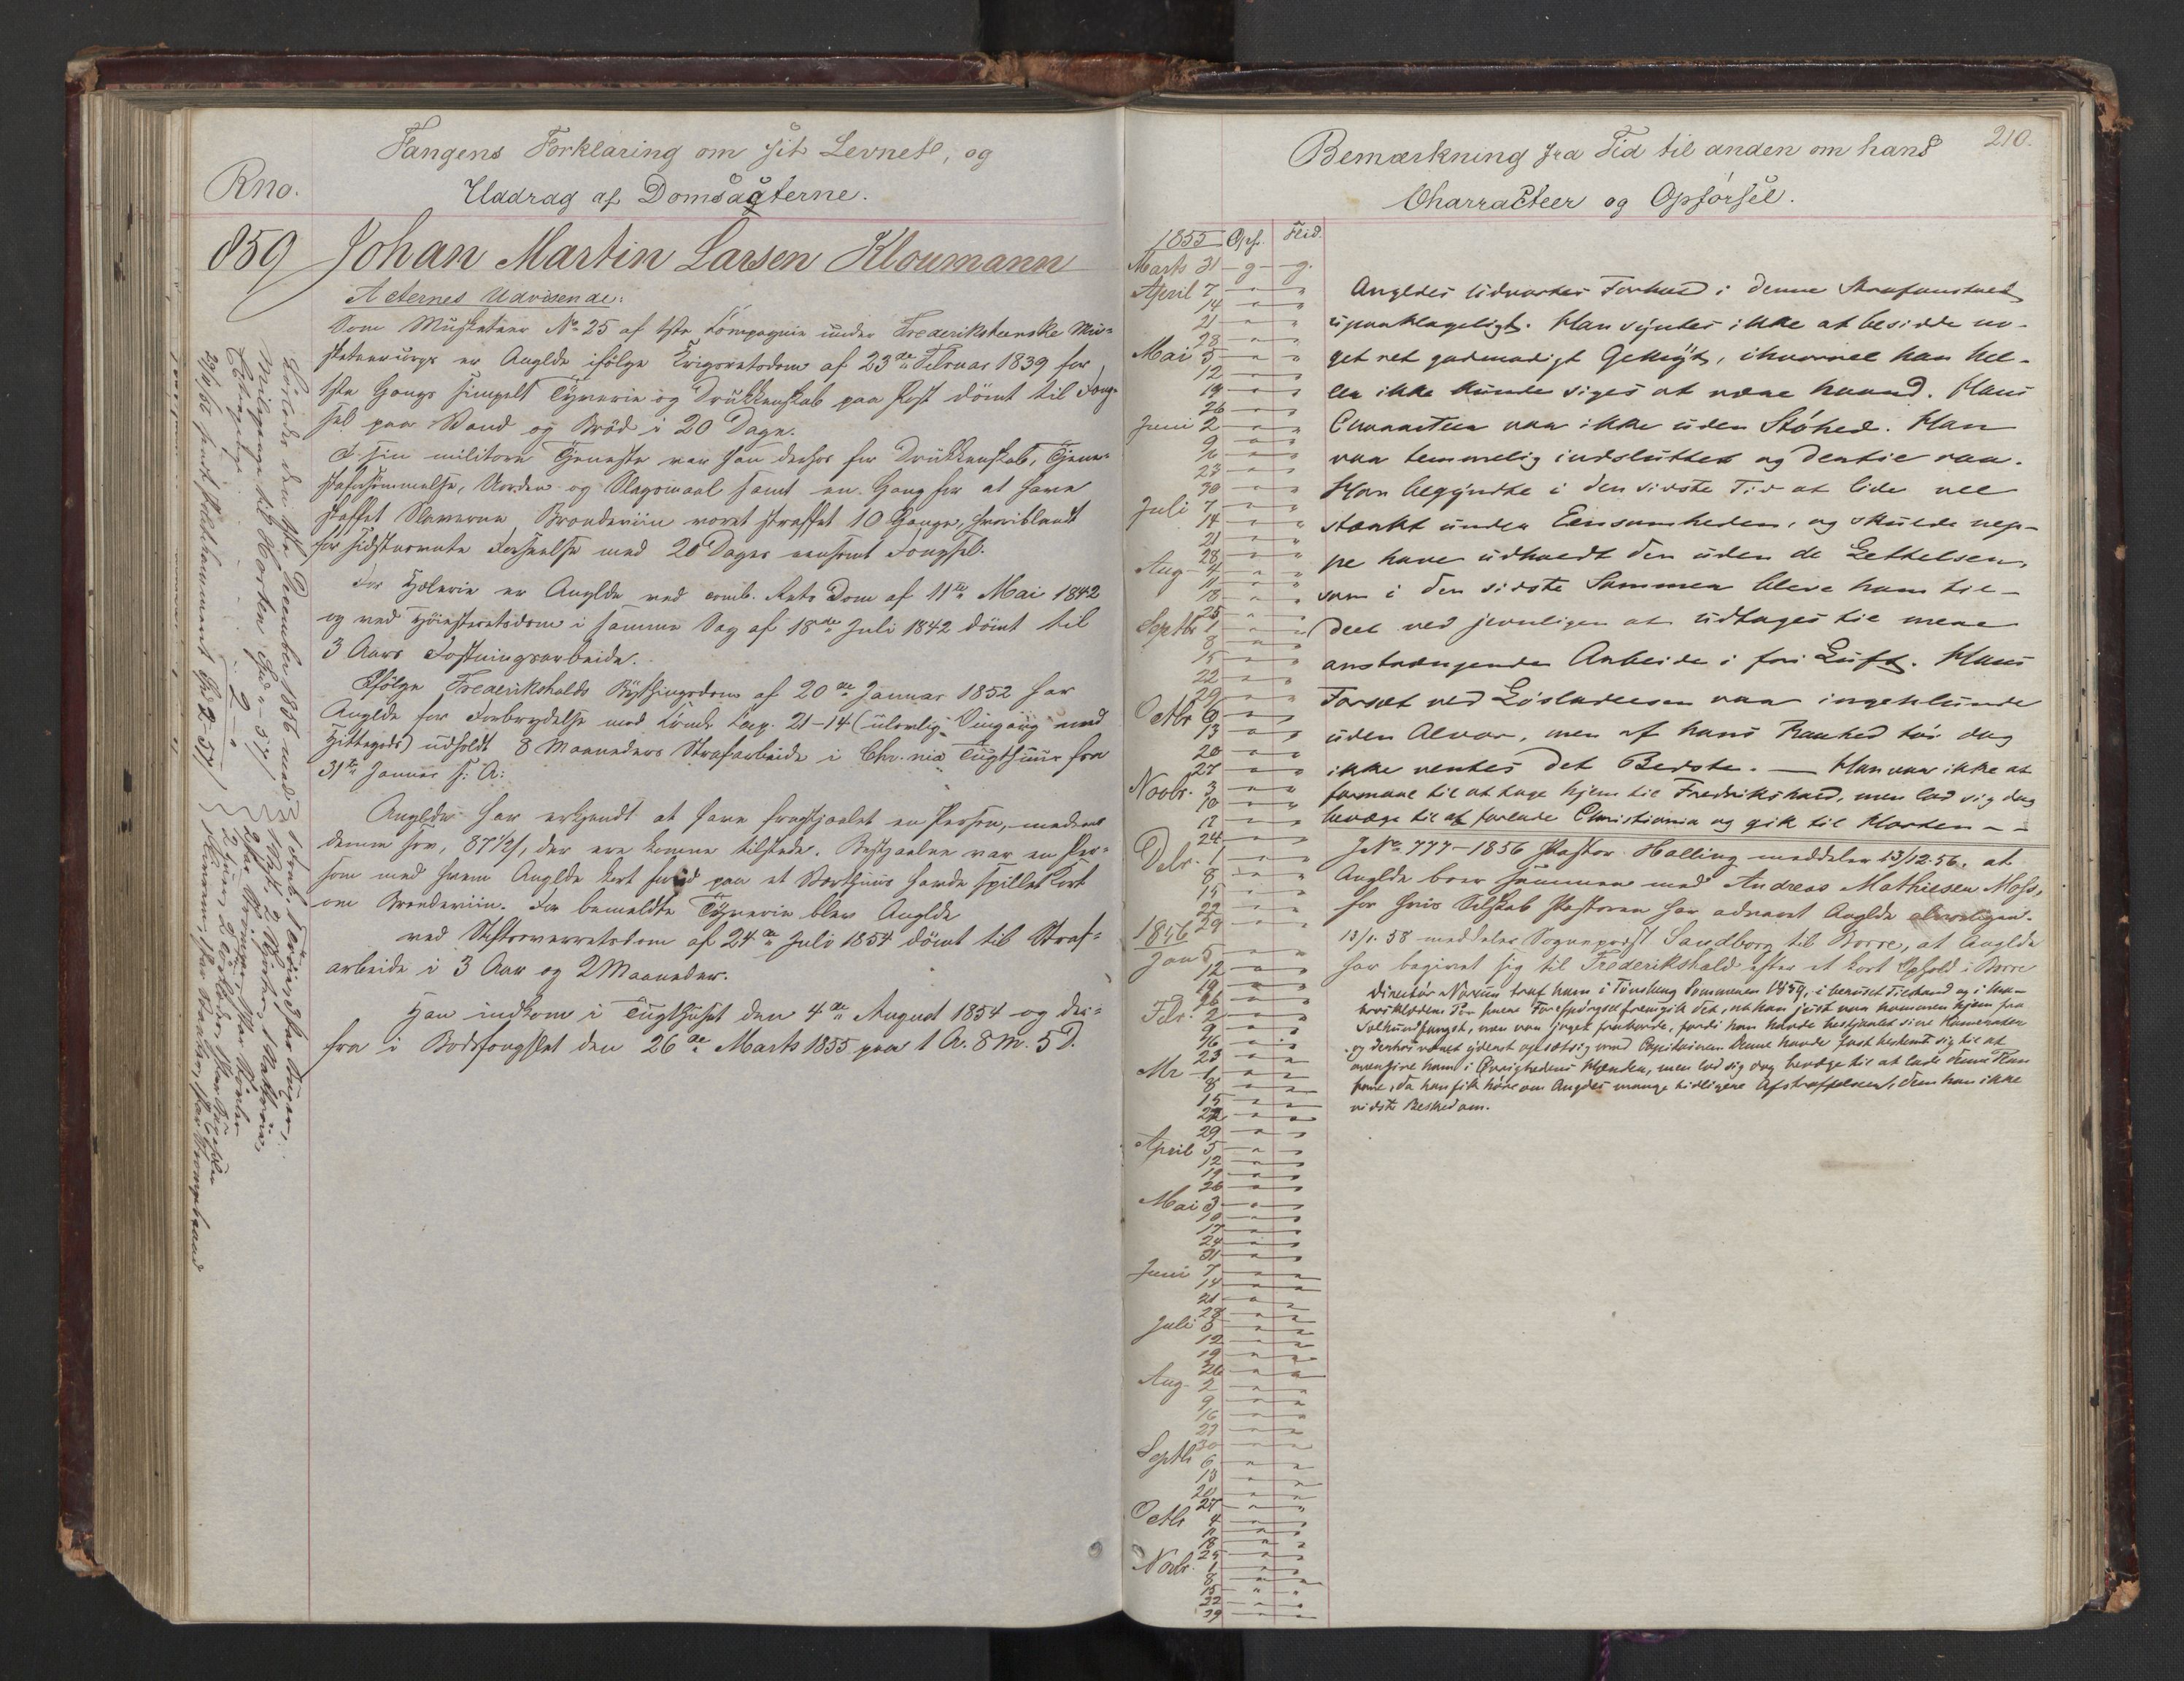 Rno.
Fangens Forklaring om sit Levnet, og
Uddrag af Domsacterne.
859 Johan Martin Larsen Kloumann
Acternes Udvisende:
Som Musketeer No 25 af 1ste Kompagnie under Frederikstenske Mus-
keteercorps er Anglde ifølge Krigsretsdom af 23de Februar 1839 for
1ste Gangs simpelt Tyverie og Drukkenskab paa Post dömt til Fæng-
sel paa Vand og Bröd i 20 Dage.
I sin militære Tjeneste var han derhos for Drukkenskab, Tjene-
steforsömmelse, Uorden og Slagsmaal samt en Gang for at have
skaffet Slaverne Brændeviin været straffet 10 Gange, hvoriblandt
for sidstnævnte Forseelse med 20 Dages eensomt Fængsel.
For Hæleri er Anglde ved comb. Rets Dom af 11te Mai 1842
og ved Höiesteretsdom i samme Sag af 18de Juli 1842 dömt til
3 Aars Fæstningsarbeide.
Ifölge Frederikshalds Bythingsdom af 20de Januar 1852 har
Anglde for Forbrydelse mod Crimls Cap. 21-14 (ulovlig Omgang med
Hittegods) udholdt 8 Maaneders Strafarbeide i Chr.nia Tugthuus fra
31te Januar s: A:
Anglde har erkjendt at have frastjaalet en Person,
denne hos, 87½ s, der ere komne tilstede. Bestjaalne var en Per-
son med hvem Anglde kort forud paa et Værtshuus havde spillet Kort
om Brændeviin. For bemeldte Tyverie blev Anglde
ved Stiftsoverretsdom af 24de Juli 1854 dömt til Straf-
arbeide i 3 Aar og 2 Maaneder.
Han indkom i Tugthuset den 4de August 1854 og der-
fra i Bodsfængslet den 26de Marts 1855 paa 1 A. 8 M. 5 D.
Lösladt den 1ste December 1856 med
Milepenge til Horten
1 Frak, 1 Tröie,
2 Skjorter,
210.
Bemærkning fra Tid til anden om hans
Characteer og Opförsel.
1855 Opf. Flid.
Marts 31 - g - g.
April 7 " "
14 " "
21 " "
28 " "
Mai 5 " "
12 " "
19 " "
26 " "
Juni 2 " "
9 " "
16 " "
23 " "
30 " "
Juli 7 " "
14 " "
21 " "
28 " "
Aug 4 " "
11 " "
18 " "
25 " "
Septbr 1 " "
8 " "
15 " "
22 " "
29 " "
Octbr 6 " "
13 " "
20 " "
27 " "
Novbr. 3 " "
10 " "
17 " "
24 " "
Debr. 1 " "
8 " "
15 " "
22 " "
29 " "
1856
Jan 5 " "
12 " "
19 " "
26 " "
Febr. 2 " "
9 " "
16 " "
23 " "
Mr 1 " "
8 " "
15 " "
22 " "
29 " "
April 5 " "
12 " "
19 " "
26 " "
Mai 3 " "
10 " "
17 " "
24 " "
31 " "
Juni 7 " "
14 " "
21 " "
28 " "
Juli 5 " "
12 " "
19 " "
26 " "
Aug. 2 " "
9 " "
16 " "
23 " "
30 " "
Septb 6 " "
13 " "
20 " "
27 " "
Octb 4 " "
11 " "
18 " "
25 " "
Novbr. 1 " "
8 " "
15 " "
22 " "
29 " "
Angldes udvortes Forhold i denne Strafanstalt
upaaklageligt. Han syntes ikke at besidde no-
get ret godmodigt Gemyt, ihvorvel han hel-
ler ikke kunde siges at være haard. Hans
Characteer var ikke uden Slöhed. Han
var temmelig indsluttet og dertil raa.
Han begyndte i den sidste Tid at lide vel
stærkt under Eensomheden, og skulde nep-
pe have udholdt den uden de Lettelser,
som i den sidste Sommer bleve ham til-
deel ved jevnligen at udtages til mere
anstrængende Arbeide i fri Luft. Hans
Forsæt ved Lösladelsen var ingenlunde
uden Alvor, men af hans Raahed tör dog
ikke ventes det Bedste. — Han var ikke at
formaae til at tage hjem til Fredrikshald, men lod sig dog
bevæge til at forlade Christiania og gik til Horten - -
J No 777 - 1856 Pastor Halling meddeler 13/12 56. at
Anglde boer sammen med Andreas Mathiesen Moss,
for hvis Selskab Pastoren har advaret Anglde alvorligen.
13/1. 58 meddeler Sogneprest Sandborg til Borre, at Anglde
har begivet sig til Frederikshald efter et kort Ophold i Borre
Directör Norum traf ham i Tönsberg Sommeren 1859, i beruset Tilstand og i
Paa hans Forespörgsel fremgik det, at han just var kommen hjem fra
Sælhundfangst, men var jaget fraborde, fordi han havde bestjaalet sine Kamerater
og derhos været yderst opsætsig mod Capitainen. Denne havde fast bestemt sig til at
overgive ham i Övrighedens Hænder, men lod sig dog bevæge til at lade denne Plan
fare, da han fik höre om Angldes mange tidligere Afstraffelser, dem han ikke
vidste Besked om.